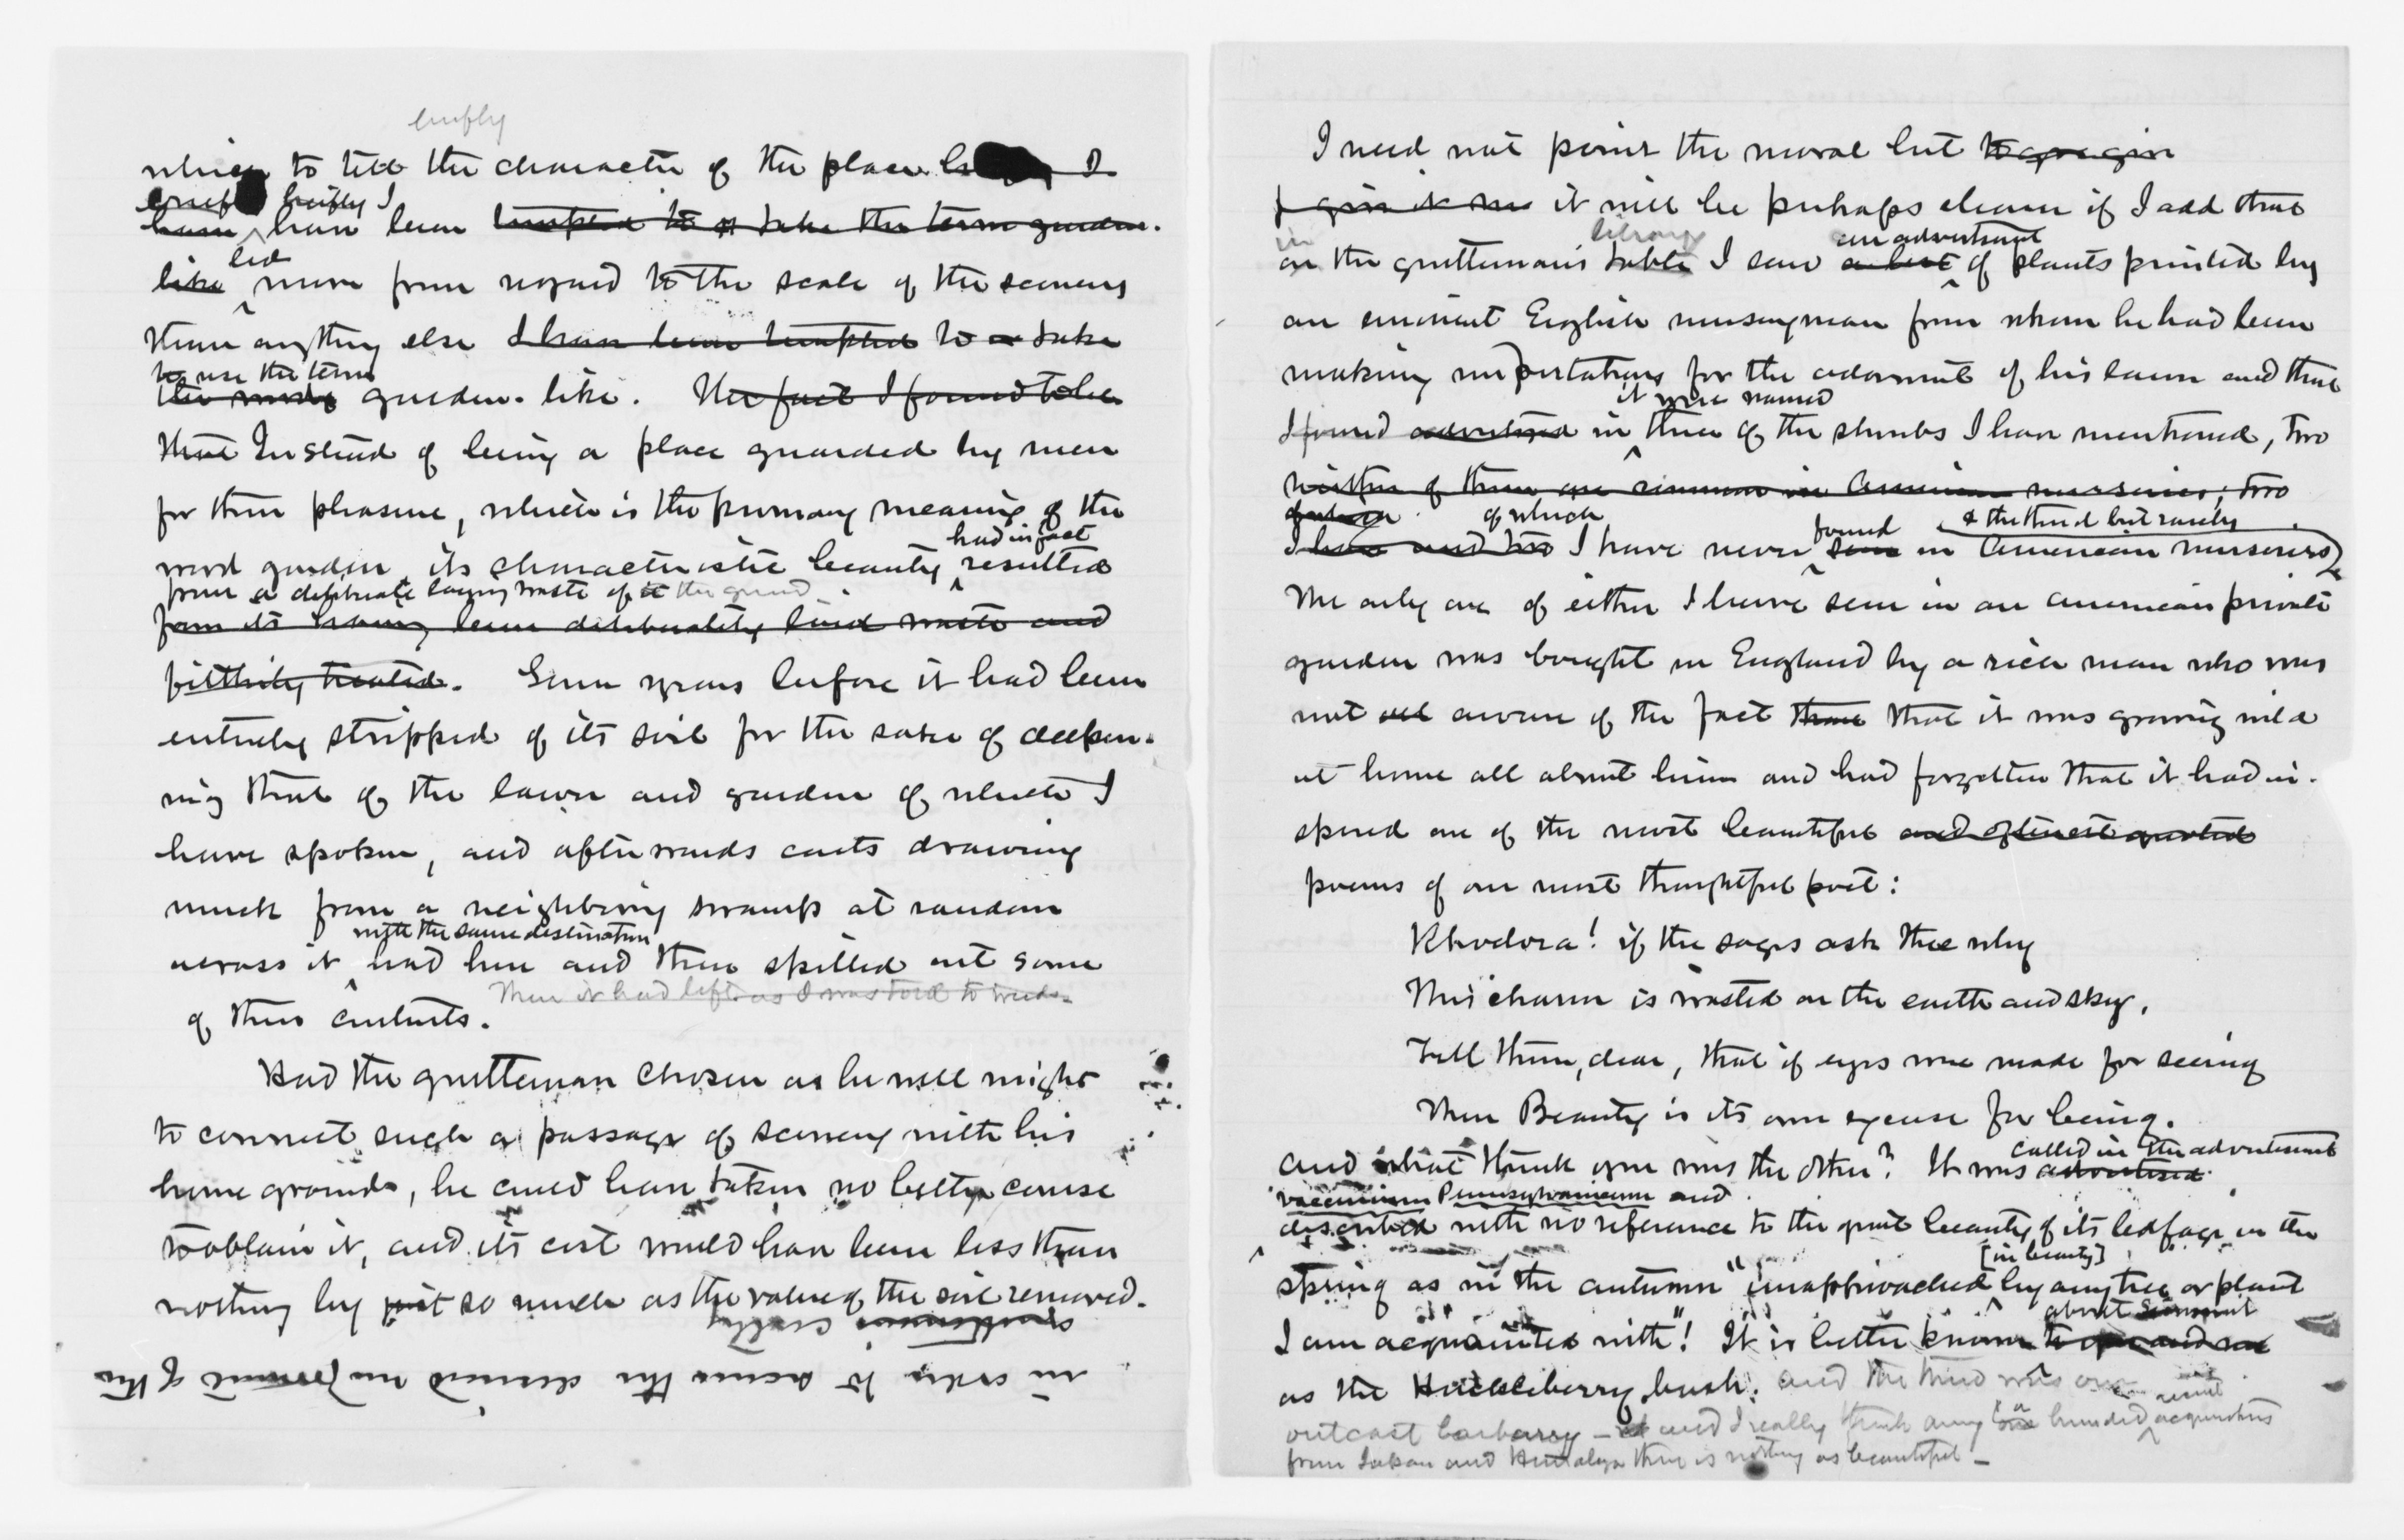 briefly
which to tell the character of the place I
briefly I
have have been tempted to take the term garden-
led
like more from regard to the scale of the scenery
than anything else I have been tempted to take
to use the term
the words garden-like. The fact I found to be
that Instead of being a place guarded by men
for their pleasure, which is the primary meaning of the
had in fact
word garden, its characteristic beauty resulted
from a deliberate laying waste of the ground
from its having been deliberately laid waste and
filthily treated. Some years before it had been
entirely stripped of its soil for the sake of deepen-
ing that of the lawn and garden of which I
have spoken, and afterwards carts drawing
muck from a neighboring swamp at random
with the same destination
across it had here and there spilled out some
Then it had left as I was told to weeds-
of their contents.
Had the gentleman chosen as he well might
to connect such a passage of scenery with his
home grounds, he could have taken no better course
to obtain it, and its cost would have been less than
nothing by just so much as the value of the soil removed.
in order to secure the desired improvement of the
I need not point the moral but
it will be perhaps clearer if I add that
in library an advertisement
on the gentleman's table I saw a list of plants printed by
an eminent English nurseryman from whom he had been
making importations for the adornment of his lawn and that
it were named
I found advertised in three of the shrubs I have mentioned, two
neither of them are common in American nurseries; two
of which of which found & the third but rarely
I have never seen in American nurseries
The only one of either I have seen in an American private
garden was bought in England by a rich man who was
not aware of the fact that that it was growing wild
at home all about him and had forgotten that it had in-
spired one of the most beautiful and oftenest quoted
poems of our most thoughtful poet:
Rhodora! if the sages ask thee why
This charm is wasted on the earth and sky,
Tell them, dear, that if eyes were made for seeing
Then Beauty is its own excuse for being.
called in the advertisement
and what think you was the other? It was advertised
vaccinium Pennsylvanicum and
described with no reference to the great beauty of its leafage in the
[in beauty]
spring as in the autumn "unapproached by any tree or plant
about
I am acquainted with"! It is better known to
as the Huckleberry bush. and the third was our
recent
outcast barberry - and I really think among a hundred acquisitions
from Japan and Himalaya there is nothing as beautiful -